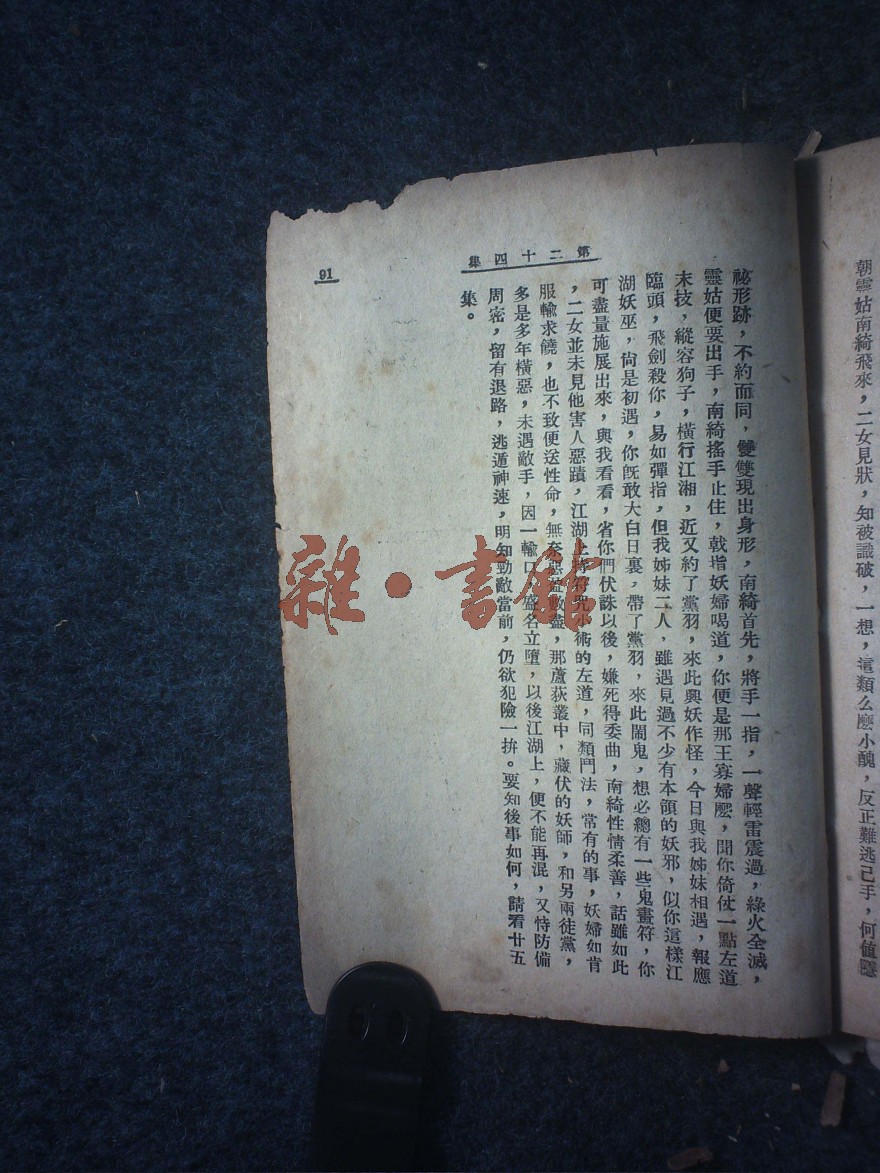 朝靈姑南綺飛來，二女見狀，知被識破，一想，這類么麼小醜，反正難逃己手，何值隱
第二十四集
祕形跡，不約而同，雙雙現出身形，南綺首先，將手一指，一聲輕雷震過，綠火全滅，
靈姑便要出手，南綺搖手止住，戟指妖婦喝道，你便是那王寡婦麽，聞你倚仗一點左道
末技，縱容狗子，橫行江湘，近又約了黨羽，來此興妖作怪，今日與我姊妹相遇，報應
臨頭，飛劍殺你，易如彈指，但我姊妹二人，雖遇見過不少有本領的妖邪，似你這樣江
湖妖巫，尙是初遇，你旣敢大白日裏，帶了黨羽，來此鬧鬼，想必總有一些鬼畫符，你
可盡量施展出來，與我看看，省你們伏誅以後，嫌死得委曲，南綺性情柔善，話雖如此
，二女並未見他害人惡蹟，江湖上恃符咒小術的左道，同類鬥法，常有的事，妖婦如肯
服輸求饒，也不致便送性命，無奈惡盈數盡，那蘆荻叢中，藏伏的妖師，和另兩徒黨，
多是多年橫惡，未遇敵手，因一輸口，盛名立墮，以後江湖上，便不能再混，又恃防備
周密，留有退路，逃遁神速，明知勁敵當前，仍欲犯險一拚。要知後事如何，請看廿五
集。
91
雜·書館